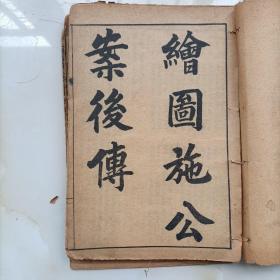 繪圖施公
案後傳